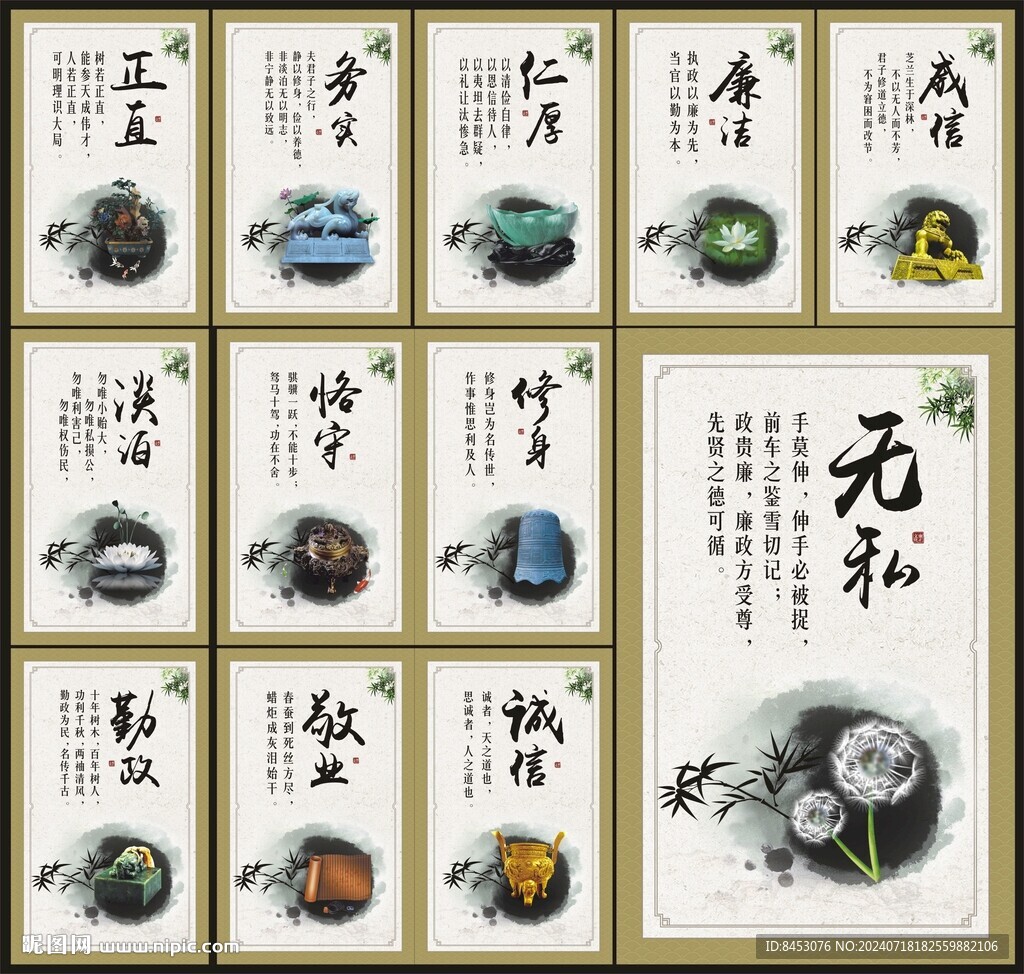 正直
树若正直，
能参天成伟才，
人若正直，
可明理识大局。
务实
夫君子之行，
静以修身，俭以养德，
非淡泊无以明志，
非宁静无以致远。
仁厚
以清俭自律，
以恩信待人，
以夷坦去群疑，
以礼让汰惨急。
廉洁
执政以廉为先，
当官以勤为本。
威信
芝兰生于深林，
不以无人而不芳，
君子修道立德，
不为穷困而改节。
淡泊
勿唯小贻大，
勿唯私损公，
勿唯利害己，
勿唯权伤民，
恪守
骐骥一跃，不能十步；
驽马十驾，功在不舍。
修身
修身岂为名传世，
作事惟思利及人。
无私
手莫伸，伸手必被捉，
前车之鉴雪切记；
政贵廉，廉政方受尊，
先贤之德可循。
勤政
十年树木，百年树人，
功利千秋，两袖清风，
勤政为民，名传千古。
敬业
春蚕到死丝方尽，
蜡炬成灰泪始干。
诚信
诚者，天之道也，
思诚者，人之道也。
昵图网 www.nipic.com
ID:8453076 NO:20240718182559882106